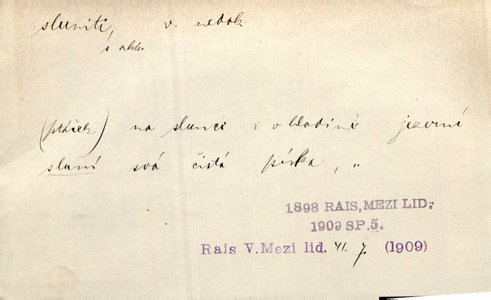 sluniti, v. nedok
s akk.
(ptáček) na slunci i v hladině jezerní
sluní svá čistá pírka, "
1898 RAIS, MEZI LID.
1909 SP.5.
Rais V. Mezi lid. VI. 7. (1909)